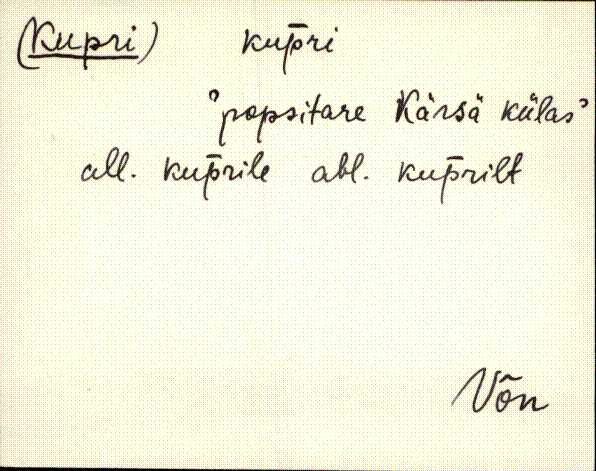 (Kupri) kup̄ri
'popsitare Kärsä külas'
all. kup̄rile abl. kup̄rilt
Võn